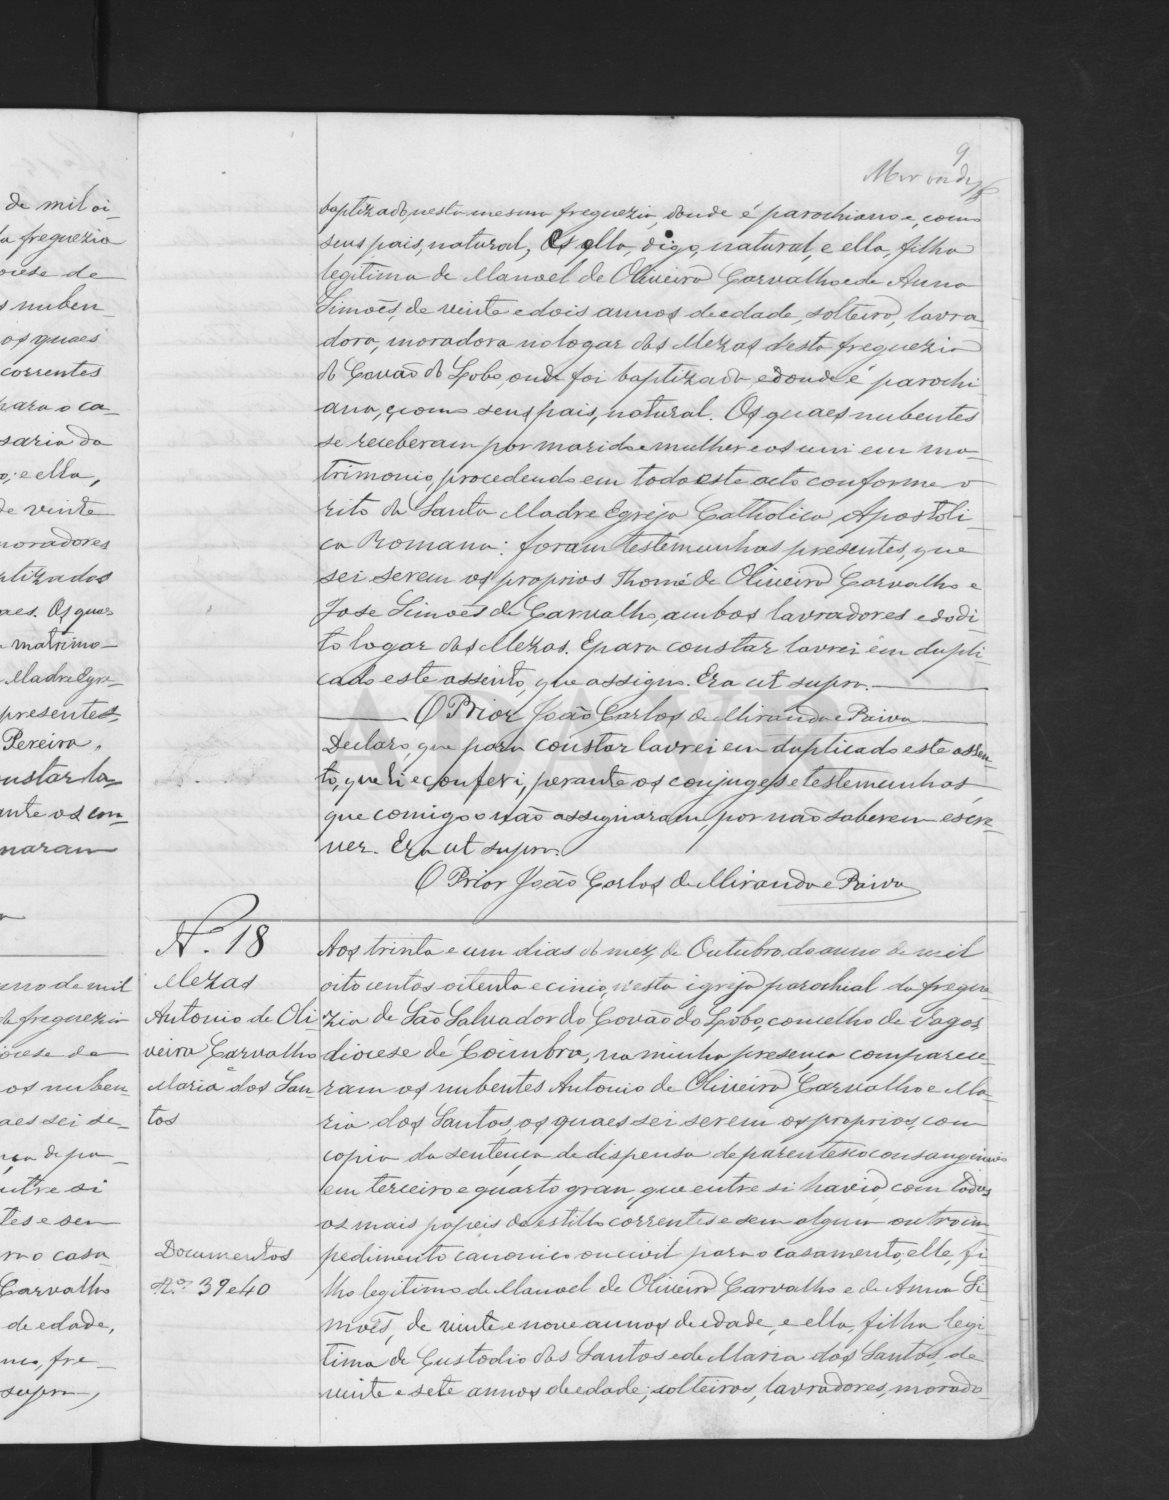 9
Miranda
de mil oi-
da freguezia
diocese de
s nuben-
os quaes
correntes
para o ca-
saria da
o; e ella,
de vinte
moradores
ptizados
aes. Os quaes
matrimo-
Madre Egre-
presentes
Pereira,
ustar la-
ante os con-
naram
baptizado, nesta mesma freguezia, donde é parochiano e, como
seus pais, natural, es ella, digo, natural, e ella, filha
legitima de Manoel de Oliveira Carvalho e de Anna
Simões, de vinte e dois annos de edade, solteira, lavra-
dora, moradora no logar das Mezas desta freguezia
do Covão do Lobo, onde foi baptizada, e donde é parochi
ana, e, como seus pais, natural. Os quaes nubentes
se receberam por marido e mulher e os uni em ma-
trimonio, procedendo em todo este acto conforme o
rito da Santa Madre Egreja Catholica Apostoli-
ca Romana: foram testemunhas presentes, que
sei serem os proprios Thomé de Oliveira Carvalho e
Jose Simões de Carvalho, ambos lavradores e do di-
to logar das Mezas. E para constar lavrei em dupli-
cado este assento, que assigno. Era ut supra.
O Prior João Carlos de Miranda e Paiva
Declaro, que para constar lavrei em duplicado este assen-
to, que li e conferi, perante os conjuges e testemunhas
que comigo não assignaram, por não saberem escre-
ver. Era ut supra.
O Prior João Carlos de Miranda e Paiva
N.º 18
Mezas
Antonio de Oli
veira Carvalho
e
Maria dos San-
tos
Documentos
N.os 39 e 40
Aos trinta e um dias do mez de Outubro do anno de mil
oitocentos oitenta e cinco, nesta igreja parochial da fregue-
zia de São Salvador do Covão do Lobo, concelho de Vagos,
diocese de Coimbra, na minha presença comparece-
ram os nubentes Antonio de Oliveira Carvalho e Ma-
ria dos Santos, os quaes sei serem os proprios, com
copia da sentença de dispensa de parentesco consanguineo
em terceiro e quarto grau, que entre si havia, com todos
os mais papeis do estillo correntes e sem algum outro im-
pedimento canonico ou civil para o casamento, elle, fi-
lho legitimo de Manoel de Oliveira Carvalho e de Anna Si-
mões, de vinte e nove annos de edade, e ella, filha legi-
tima de Custodio dos Santos e de Maria dos Santos, de
vinte e sete annos de edade; solteiros, lavradores, morado-
anno de mil
da freguezia
diocese de
os nuben-
aes sei se-
ença de pa-
entre si
tes e sem
ra o casa-
Carvalho
de edade,
supra,